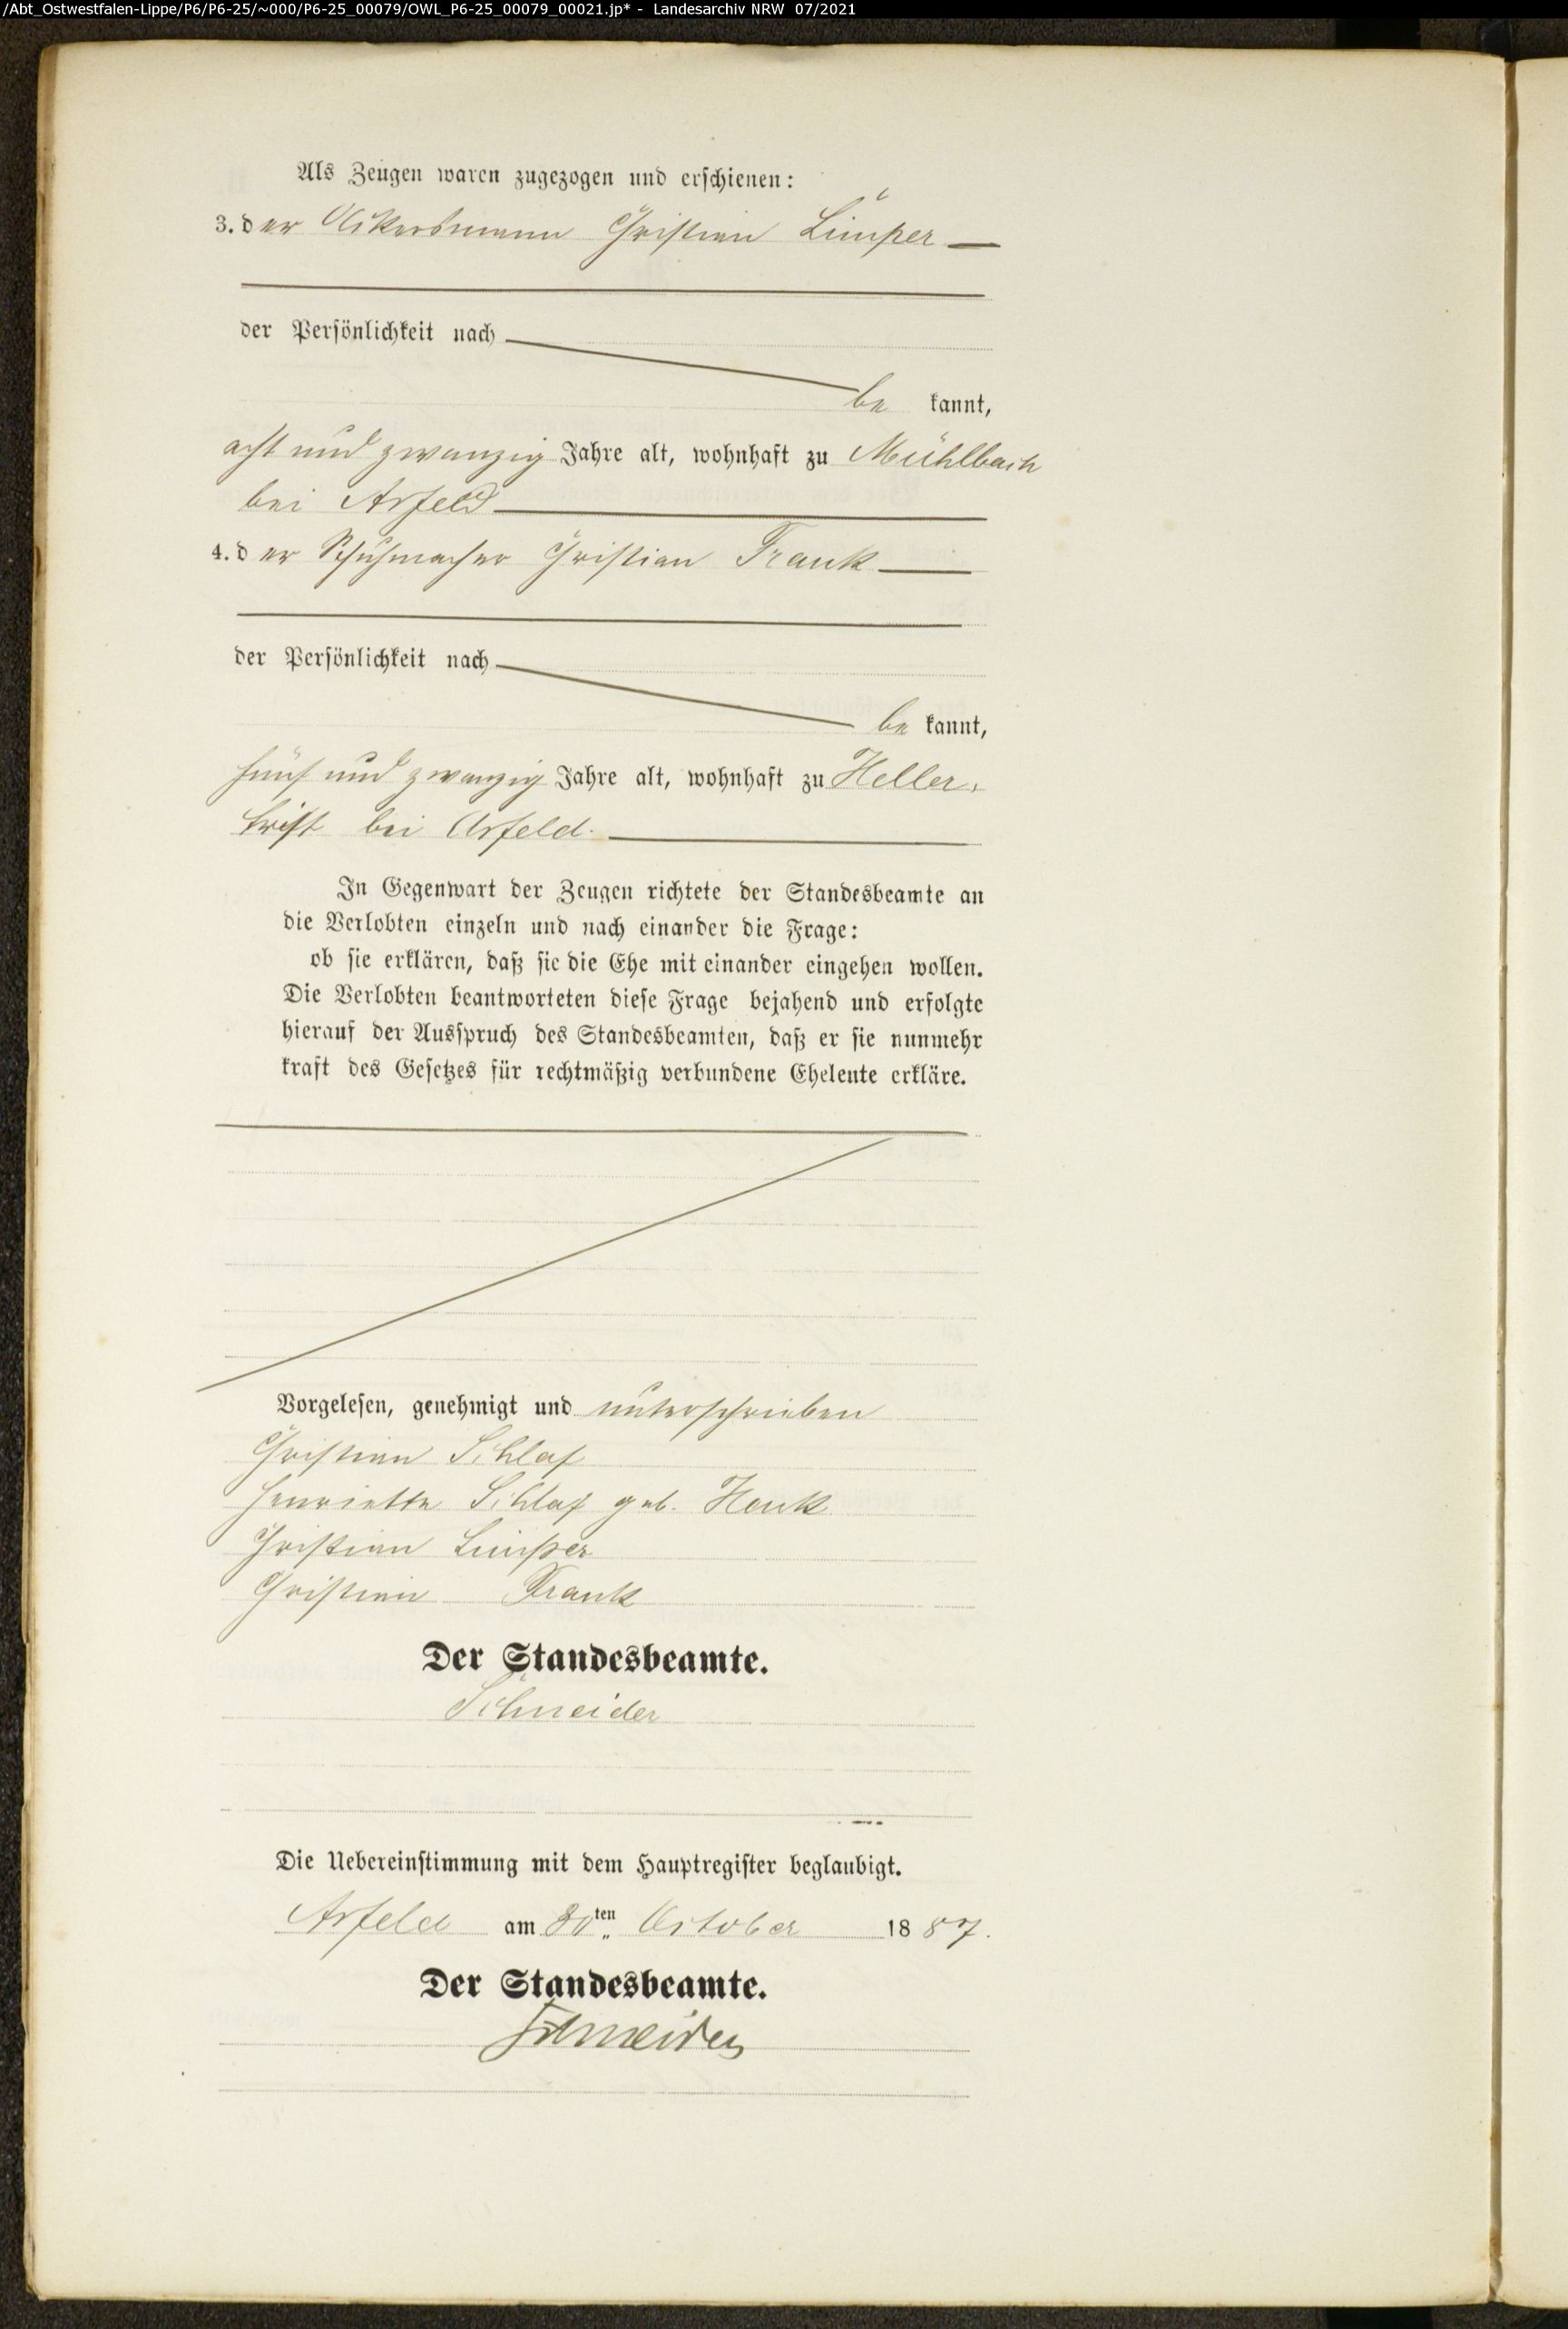 /Abt_Ostwestfalen-Lippe/P6/P6-25/~000/P6-25_00079/OWL_P6-25_00079_00021.jp* - Landesarchiv NRW 07/2021
Als Zeugen waren zugezogen und erschienen:
3. der Ackersmann Christian Limper
der Persönlichkeit nach
be kannt,
acht und zwanzig Jahre alt, wohnhaft zu Mühlbach
bei Arfeld
4. der Schuhmacher Christian Frank
der Persönlichkeit nach
be kannt,
fünf und zwanzig Jahre alt, wohnhaft zu Heller-
trift bei Arfeld.
In Gegenwart der Zeugen richtete der Standesbeamte an
die Verlobten einzeln und nach einander die Frage:
ob sie erklären, daß sie die Ehe mit einander eingehen wollen.
Die Verlobten beantworteten diese Frage bejahend und erfolgte
hierauf der Ausspruch des Standesbeamten, daß er sie nunmehr
kraft des Gesetzes für rechtmäßig verbundene Eheleute erkläre.
Vorgelesen, genehmigt und unterschrieben
Christian Schlaf
Henriette Schlaf geb. Honk
Christian Limper
Christian Frank
Der Standesbeamte.
Schneider
Die Uebereinstimmung mit dem Hauptregister beglaubigt.
Arfeld am 30ten October 1887.
Der Standesbeamte.
Schneider